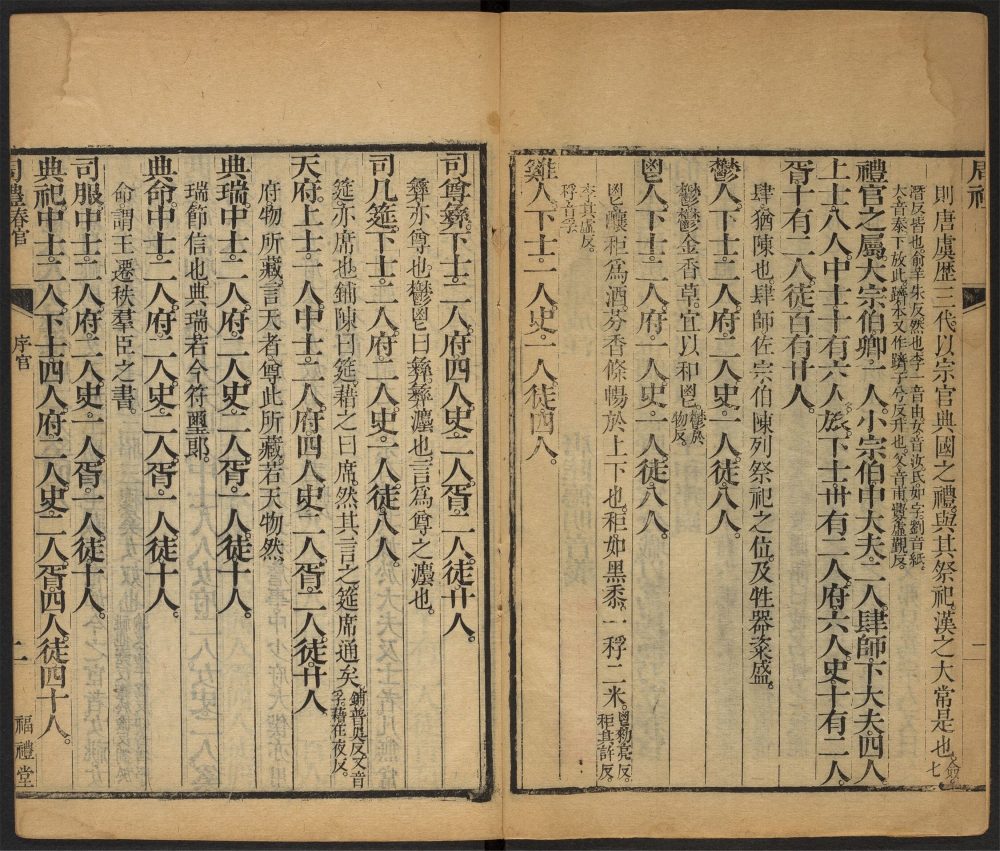 周禮
則唐虞歷三代以宗官典國之禮與其祭祀漢之大常是也
潛反皆也俞羊朱反然也李一音由女音汝氏如字劉音紙
大音泰下放此
禮官之屬大宗伯卿一人小宗伯中大夫二人肆師下大夫四人
上士八人中士十有六人旅下士卅有二人府六人史十有二人
胥十有二人徒百有廿人
肆猶陳也肆師佐宗伯陳列祭祀之位及牲器粢盛
鬱人下士二人府二人史一人徒八人
鬱鬱金香草宜以和鬯鬱於
物反
鬯人下士二人府一人史一人徒八人
鬯釀秬為酒芬香條暢於上下也秬如黑黍一稃二米鬯勑亮反
秬其許反
李其據反
稃音孚
雞人下士一人史一人徒四人
司尊彝下士二人府四人史二人胥二人徒廿人
彝亦尊也鬱鬯曰彝彝灋也言為尊之灋也
司几筵下士二人府二人史一人徒八人
筵亦席也鋪陳曰筵藉之曰席然其言之筵席通矣鋪普吳反又音
孚藉在夜反
天府上士一人中士二人府四人史二人胥二人徒廿人
府物所藏言天者尊此所藏若天物然
典瑞中士二人府二人史二人胥一人徒十人
瑞節信也典瑞若今符璽郎
典命中士二人府二人史二人胥一人徒十人
命謂王遷秩羣臣之書
司服中士二人府二人史一人胥一人徒十人
典祀中士二人下士四人府二人史二人胥四人徒四十人
周禮春官
序官
二
福禮堂